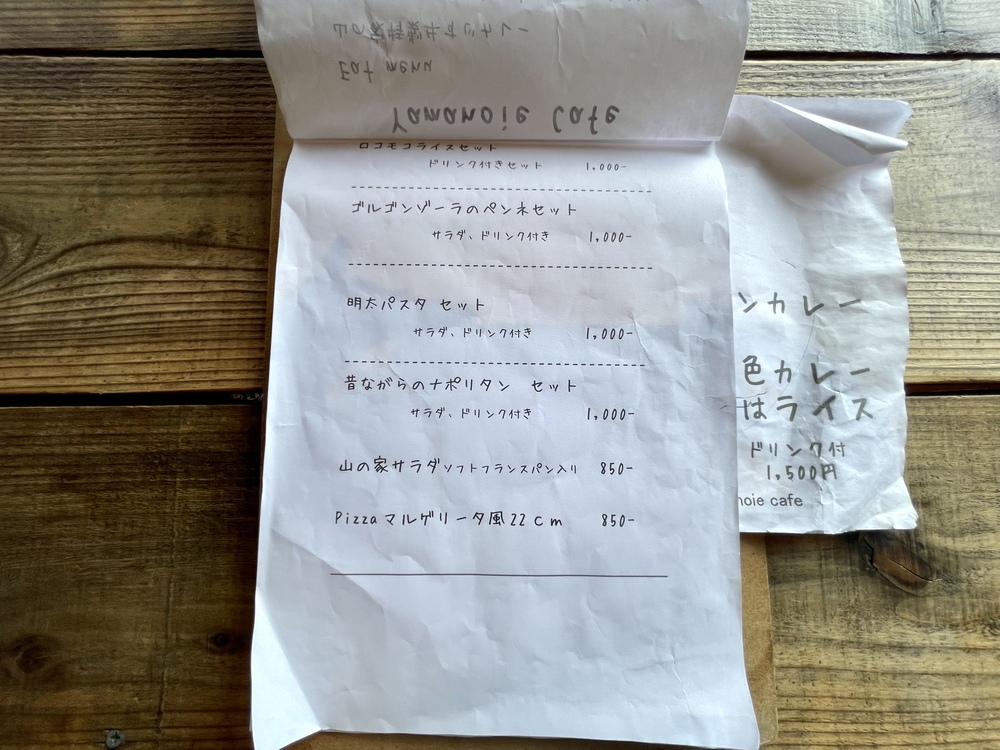 Eat menu
Yamanoie Cafe
ロコモコライスセット
ドリンク付きセット 1,000-
ゴルゴンゾーラのペンネセット
サラダ、ドリンク付き 1,000-
明太パスタ セット
サラダ、ドリンク付き 1,000-
昔ながらのナポリタン セット
サラダ、ドリンク付き 1,000-
山の家サラダソフトフランスパン入り 850-
Pizzaマルゲリータ風22cm 850-
ンカレー
色カレー
はライス
ドリンク付
1,500円
noie cafe